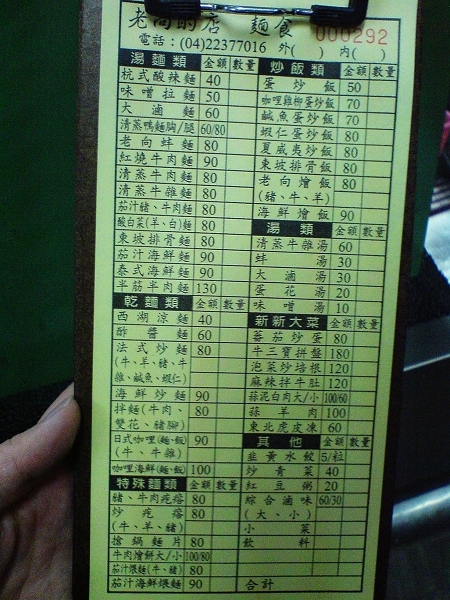 老向的店 麵食
000292
電話：(04)22377016 外( ) 內( )
湯麵類 金額 數量
杭式酸辣麵 40
味噌拉麵 50
大滷麵 60
清蒸鴨麵胸/腿 60/80
老向蚌麵 80
紅燒牛肉麵 90
清蒸牛肉麵 80
清蒸牛雜麵 80
茄汁豬、牛肉麵 80
酸白菜(羊、白)麵 80
東坡排骨麵 80
茄汁海鮮麵 90
泰式海鮮麵 90
半筋半肉麵 130
乾麵類 金額 數量
西湖涼麵 40
酢醬麵 60
法式炒麵 80
(牛、羊、豬、牛
雜、鹹魚、蝦仁)
海鮮炒麵 90
拌麵(牛肉、 80
雙花、豬腳)
日式咖哩(麵、飯) 90
(牛、牛雜)
咖哩海鮮(麵、飯) 100
特殊麵類 金額 數量
豬、牛肉疙瘩 80
炒疙瘩 80
(牛、羊、豬)
搶鍋麵片 80
牛肉燴餅大/小 100/80
茄汁煨麵(牛、豬) 80
茄汁海鮮煨麵 90
炒飯類 金額 數量
蛋炒飯 50
咖哩雞柳蛋炒飯 70
鹹魚蛋炒飯 70
蝦仁蛋炒飯 80
夏威夷炒飯 80
東坡排骨飯 80
老向燴飯 80
(豬、牛、羊)
海鮮燴飯 90
湯類 金額 數量
清蒸牛雜湯 60
蚌湯 30
大滷湯 30
蛋花湯 20
味噌湯 10
新新大菜 金額 數量
蕃茄炒蛋 80
牛三寶拼盤 180
泡菜炒培根 120
麻辣拌牛肚 120
蒜泥白肉大/小 100/60
蒜羊肉 100
東北虎皮凍 60
其他 金額 數量
韭黃水餃 5/粒
炒青菜 40
紅豆粥 20
綜合滷味 60/30
(大、小)
小菜
飲料
合計